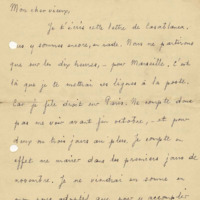 Mon cher vieux,
Je t'écris cette lettre de Casablanca,
où nous y sommes encore, en rade. Nous ne partirons
que sur les dix heures, – pour Marseille, c'est
là que je te mettrai ces lignes à la poste.
Car je file droit sur Paris. Ne compte donc
pas me voir avant fin octobre, – et pour
deux ou trois jours au plus. Je compte en
effet me marier dans les premiers jours de
novembre. Je ne viendrai en somme